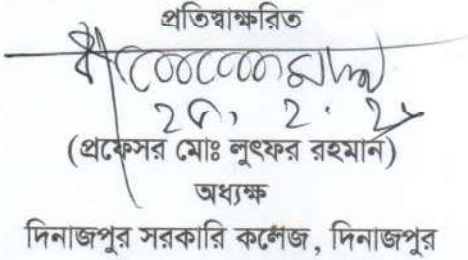 প্রতিস্বাক্ষরিত
(প্রফেসর মোঃ লুৎফর রহমান)
অধ্যক্ষ
দিনাজপুর সরকারি কলেজ, দিনাজপুর